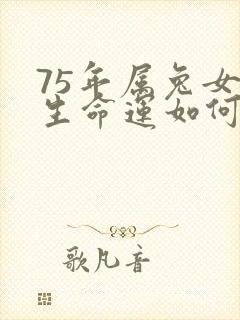 75年属兔女
生命运如何
歌凡音